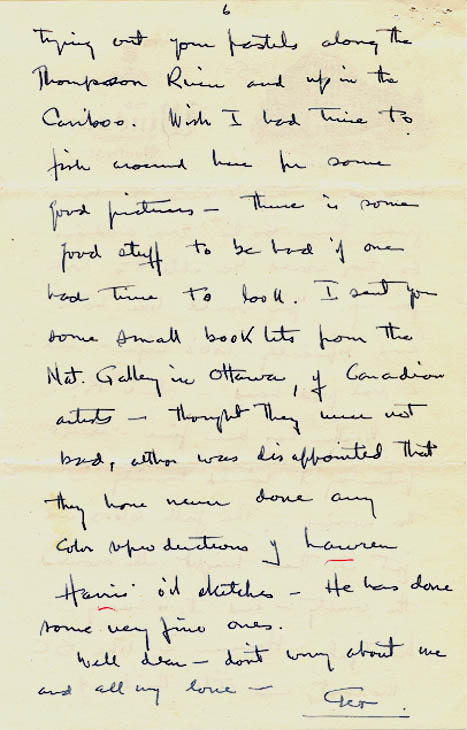 6
trying out your pastels along the
Thompson River and up in the
Cariboo. Wish I had time to
fish around here for some
good pictures – there is some
good stuff to be had if one
had time to look. I sent you
some small booklets from the
Nat. Galley in Ottawa, of Canadian
artists – thought they were not
bad, altho was disappointed that
they have never done any
color reproductions of Lawren
Harris' oil sketches – He has done
some very fine ones.
Well dear – don't worry about me
and all my love –
Geo.